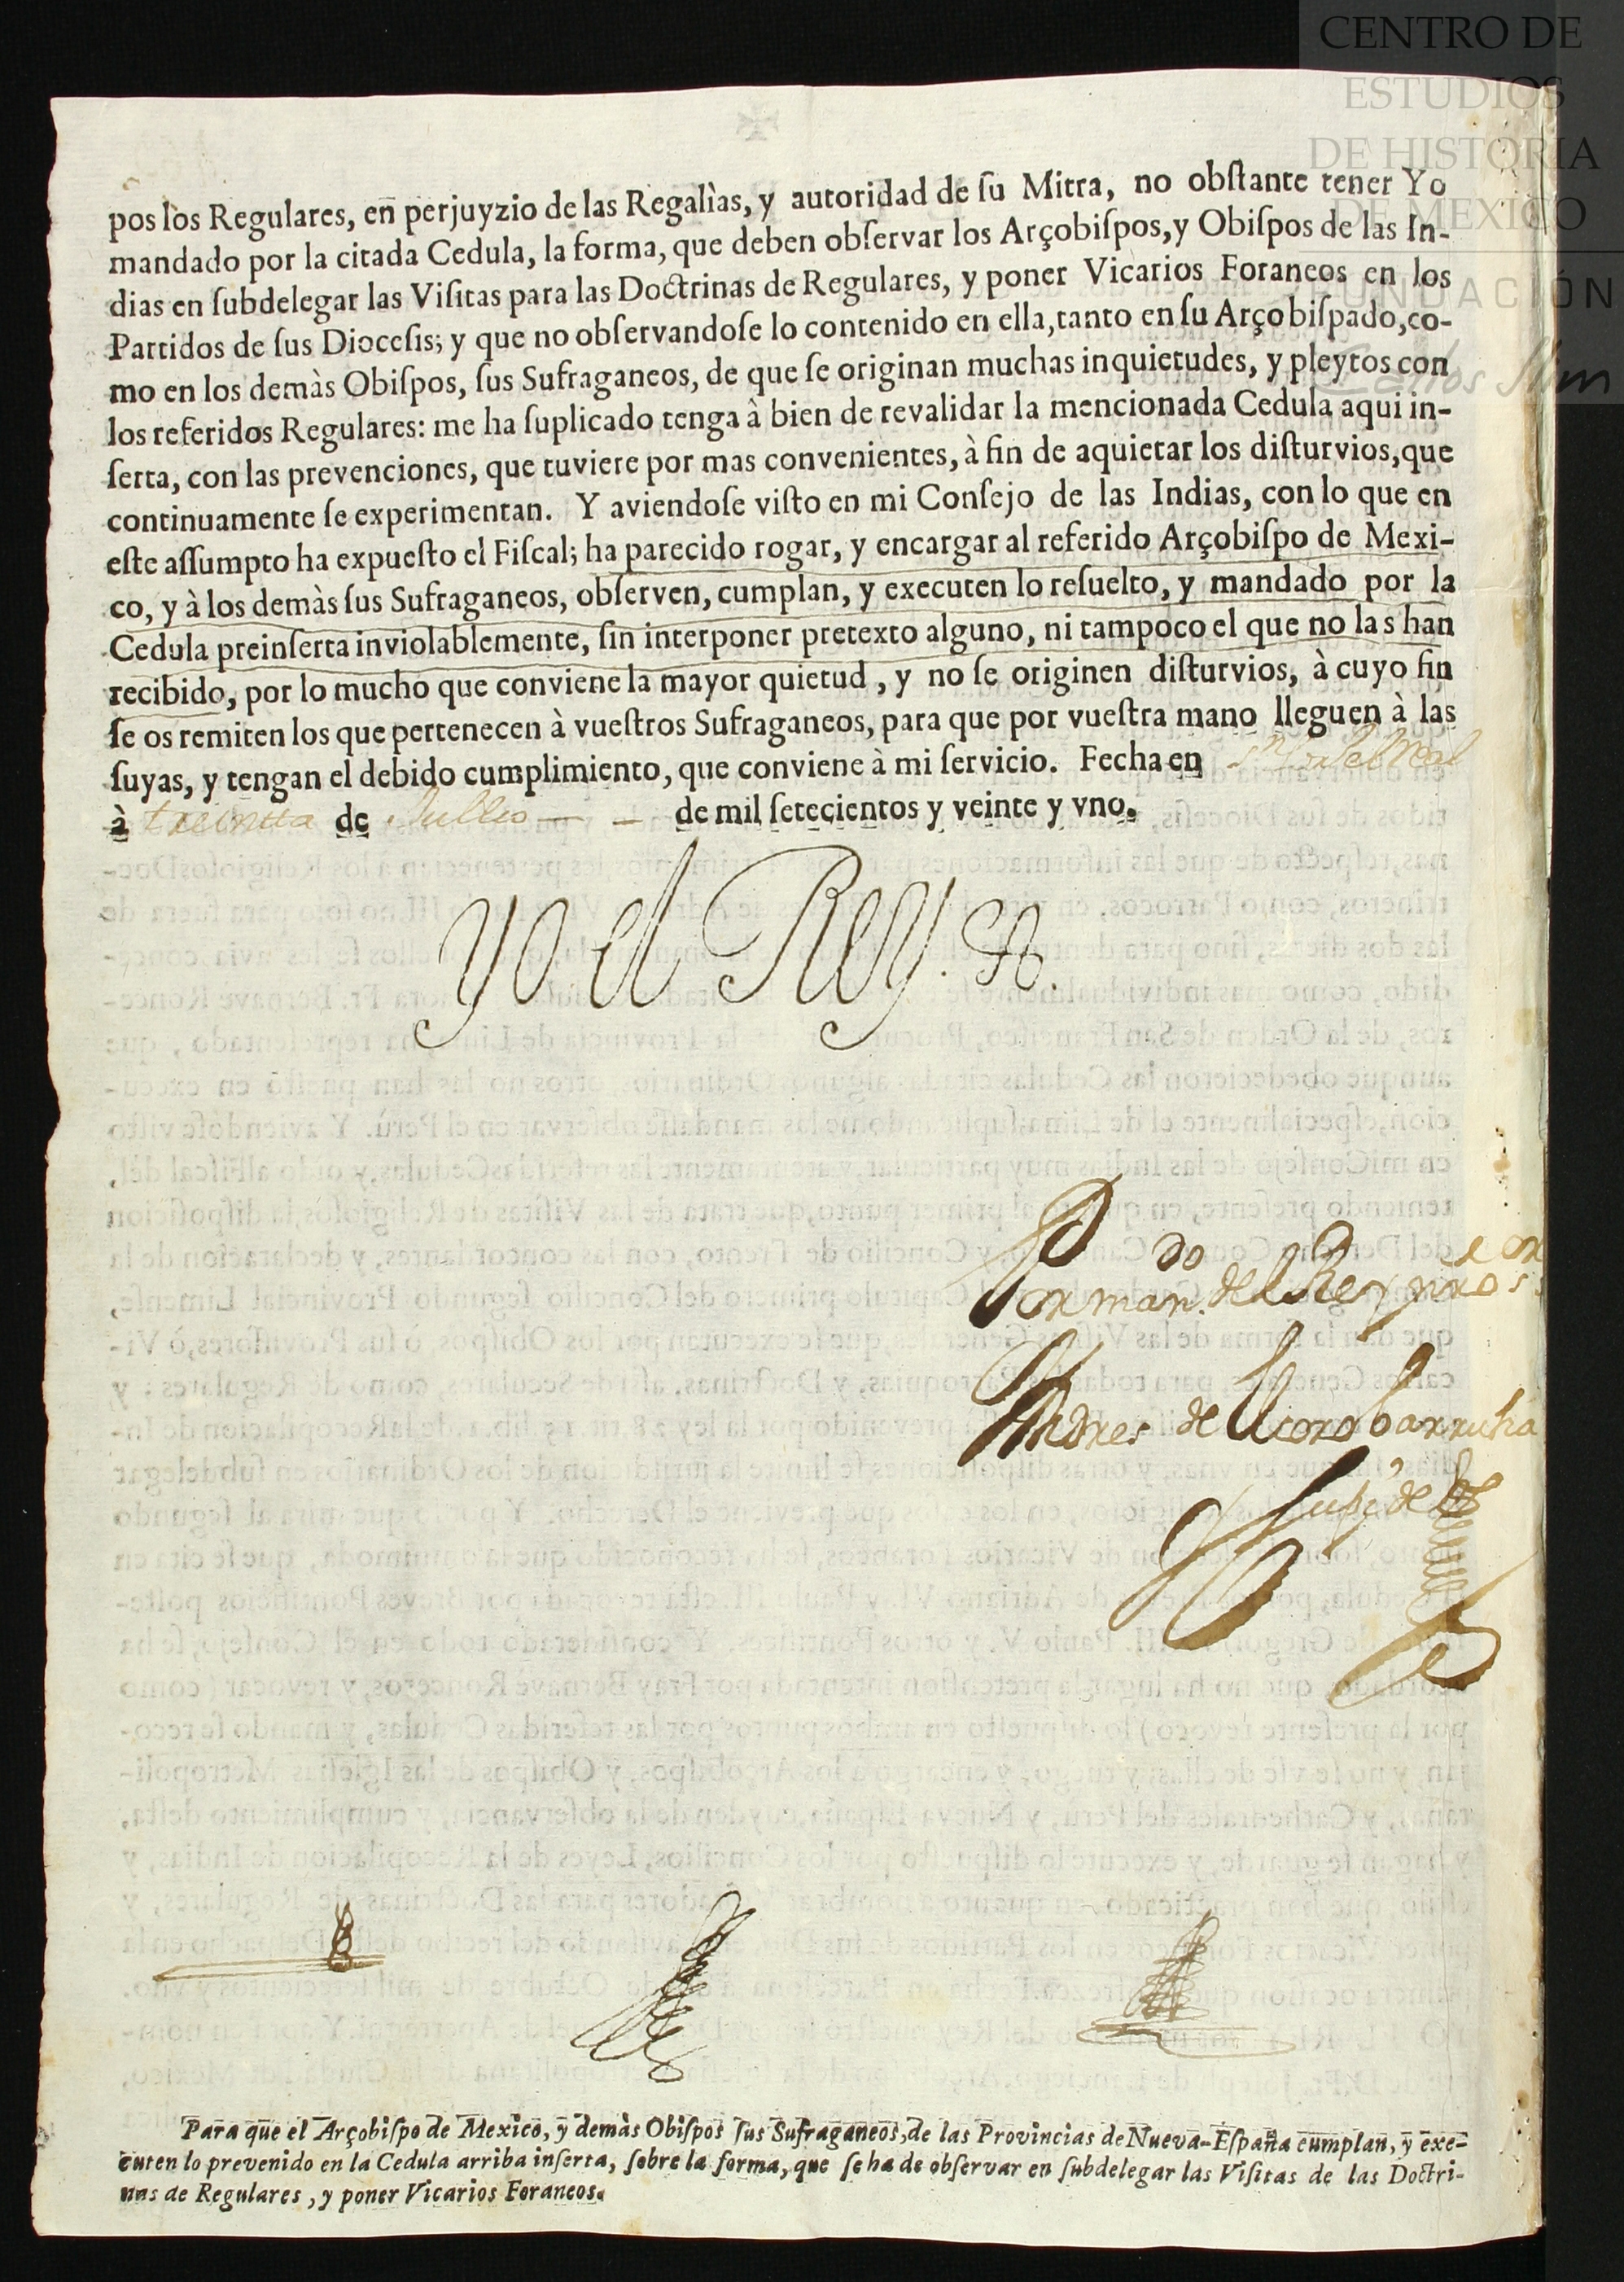 CENTRO DE
ESTUDIOS
DE HISTORIA
DE MEXICO
FUNDACIÓN
Carlos Slim
pos los Regulares, en perjuyzio de las Regalìas, y autoridad de ſu Mitra, no obſtante tener Yo
mandado por la citada Cedula, la forma, que deben obſervar los Arçobiſpos, y Obiſpos de las In-
dias en ſubdelegar las Viſitas para las Doctrinas de Regulares, y poner Vicarios Foraneos en los
Partidos de ſus Dioceſis; y que no obſervandoſe lo contenido en ella, tanto en ſu Arçobiſpado, co-
mo en los demàs Obiſpos, ſus Sufraganeos, de que ſe originan muchas inquietudes, y pleytos con
los referidos Regulares: me ha ſuplicado tenga à bien de revalidar la mencionada Cedula aqui in-
ſerta, con las prevenciones, que tuviere por mas convenientes, à fin de aquietar los diſturvios, que
continuamente ſe experimentan. Y aviendoſe viſto en mi Conſejo de las Indias, con lo que en
eſte aſſumpto ha expueſto el Fiſcal; ha parecido rogar, y encargar al referido Arçobiſpo de Mexi-
co, y à los demàs ſus Sufraganeos, obſerven, cumplan, y executen lo reſuelto, y mandado por la
Cedula preinſerta inviolablemente, ſin interponer pretexto alguno, ni tampoco el que no las han
recibido, por lo mucho que conviene la mayor quietud, y no ſe originen diſturvios, à cuyo fin
ſe os remiten los que pertenecen à vueſtros Sufraganeos, para que por vueſtra mano lleguen à las
ſuyas, y tengan el debido cumplimiento, que conviene à mi ſervicio. Fecha en Sn Lo del Real
à treinta de Jullio de mil ſetecientos y veinte y vno.
Yo el Rey.
Por mando del Rey nro sor
Andres de Elcorobarrutia
Zupide
Para que el Arçobiſpo de Mexico, y demàs Obiſpos ſus Sufraganeos, de las Provincias de Nueva-Eſpaña cumplan, y exe-
cuten lo prevenido en la Cedula arriba inſerta, ſobre la forma, que ſe ha de obſervar en ſubdelegar las Viſitas de las Doctri-
nas de Regulares, y poner Vicarios Foraneos.